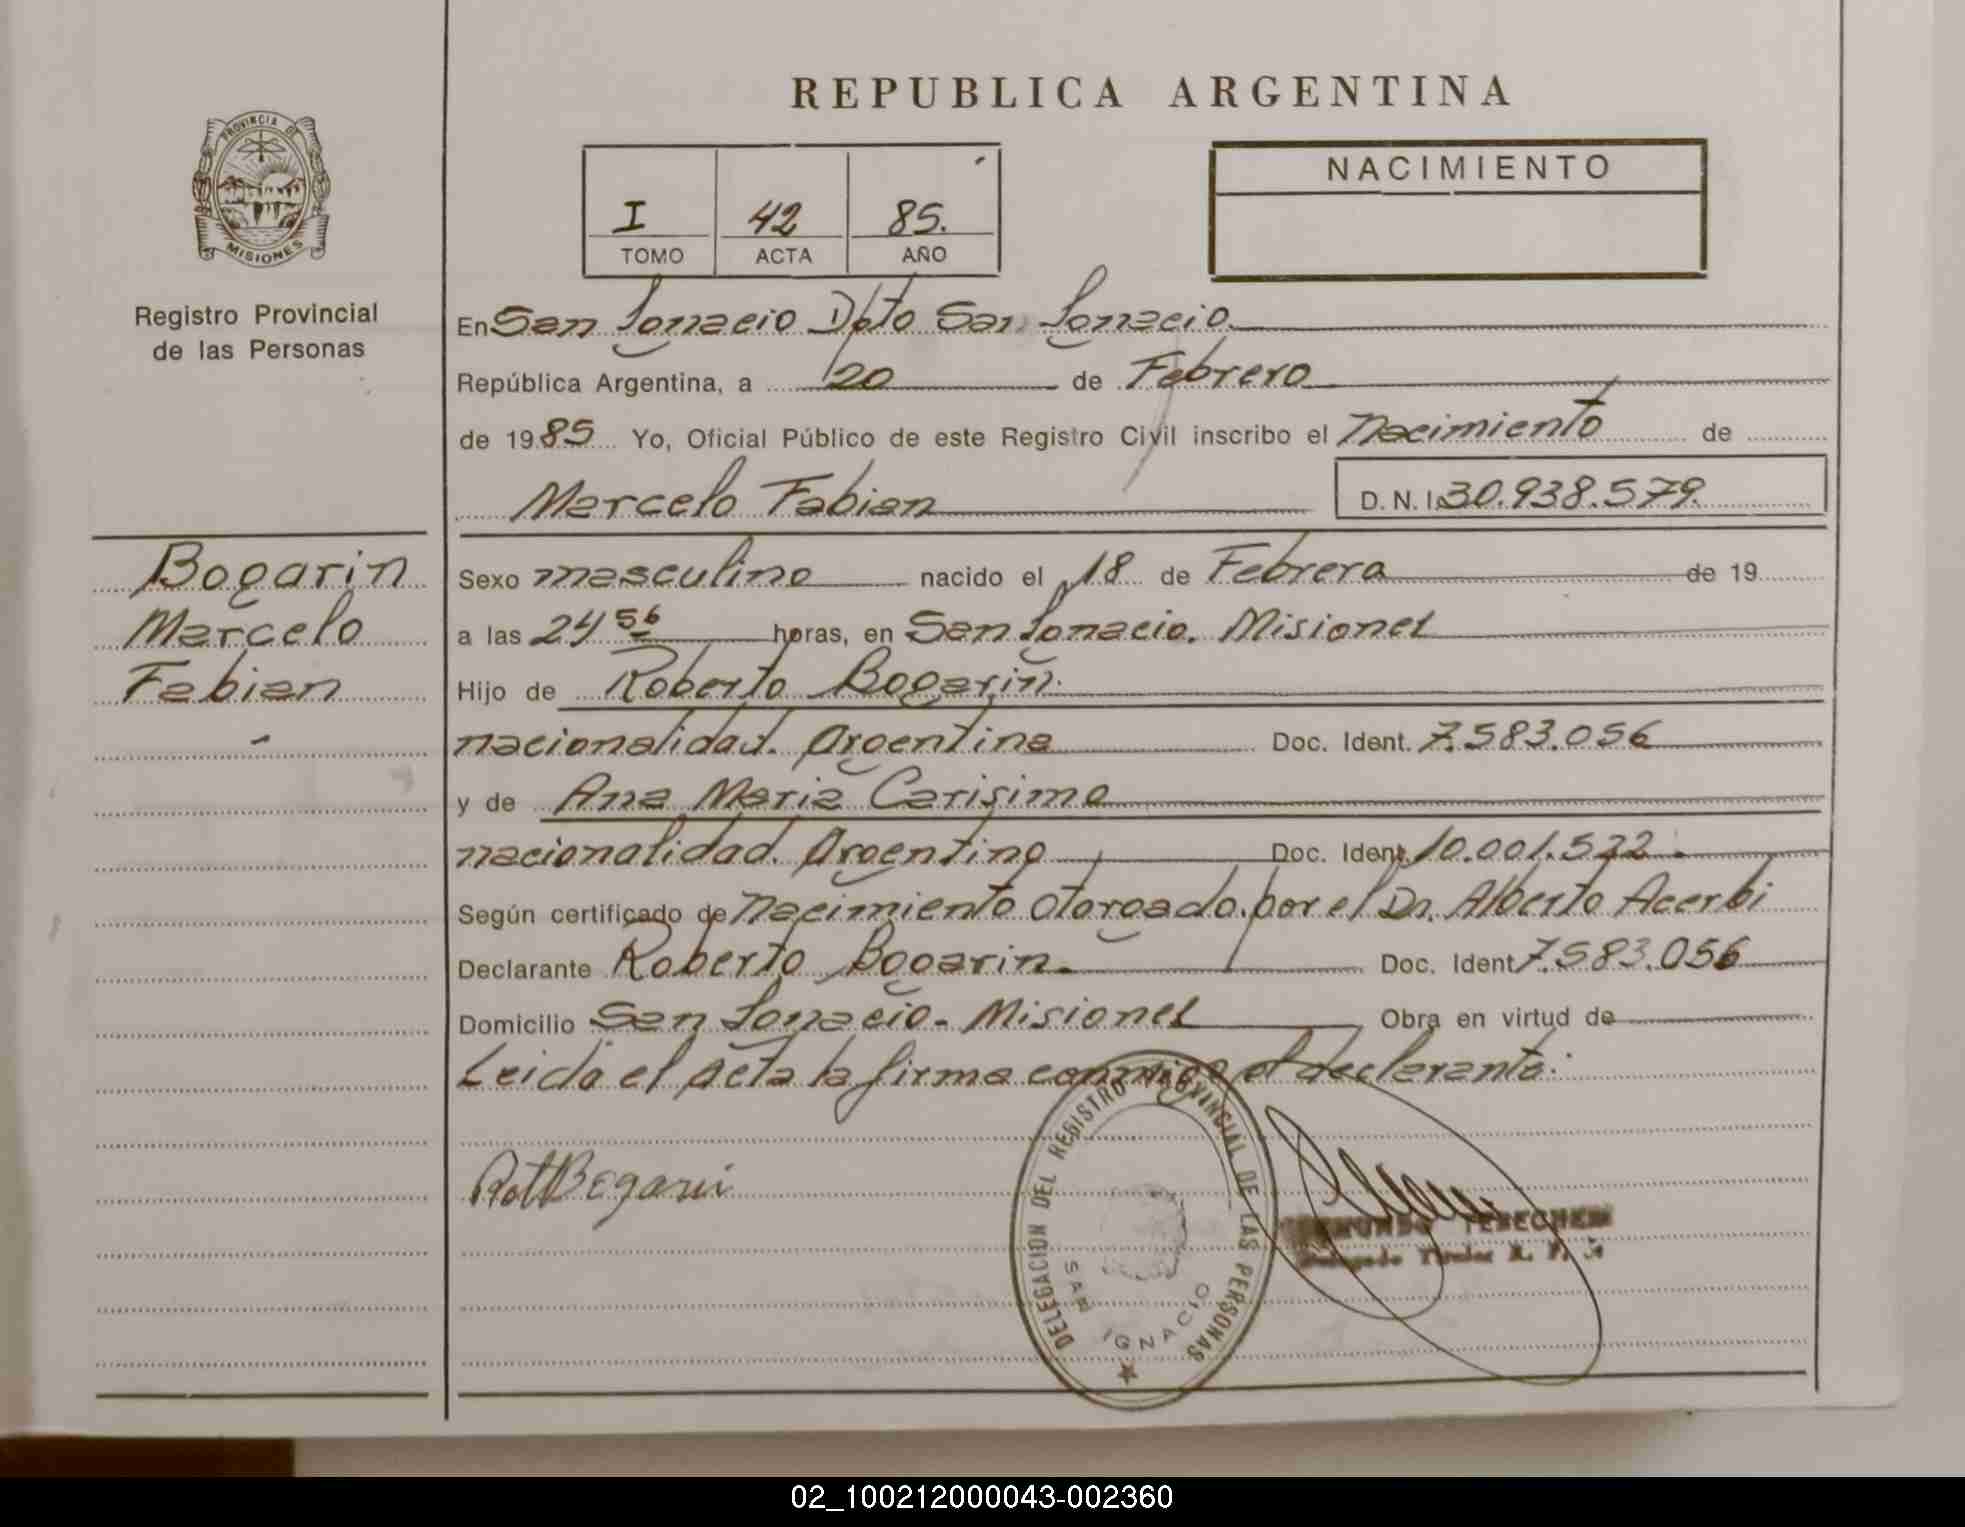 REPUBLICA ARGENTINA
PROVINCIA DE
MISIONES
Registro Provincial
de las Personas
I 42 85.
TOMO ACTA AÑO
NACIMIENTO
En San Ignacio Dpto San Ignacio
República Argentina, a 20 de Febrero
de 1985 Yo, Oficial Público de este Registro Civil inscribo el Nacimiento de
Marcelo Fabian D.N.I. 30.938.579.
Bogarin
Marcelo
Fabian
Sexo masculino nacido el 18 de Febrero de 19
a las 24 56 horas, en San Ignacio. Misiones
Hijo de Roberto Bogarin.
nacionalidad. Argentina Doc. Ident. 7.583.056
y de Ana Maria Carisimo
nacionalidad. Argentina Doc. Ident. 10.001.522.
Según certificado de Nacimiento otorgado por el Dr. Alberto Acerbi
Declarante Roberto Bogarin. Doc. Ident 7.583.056
Domicilio San Ignacio - Misiones Obra en virtud de
Leida el acta la firma conmigo el declarante.
DELEGACION DEL REGISTRO PROVINCIAL DE LAS PERSONAS
SAN IGNACIO
Delegado Titular R. P.
02_100212000043-002360